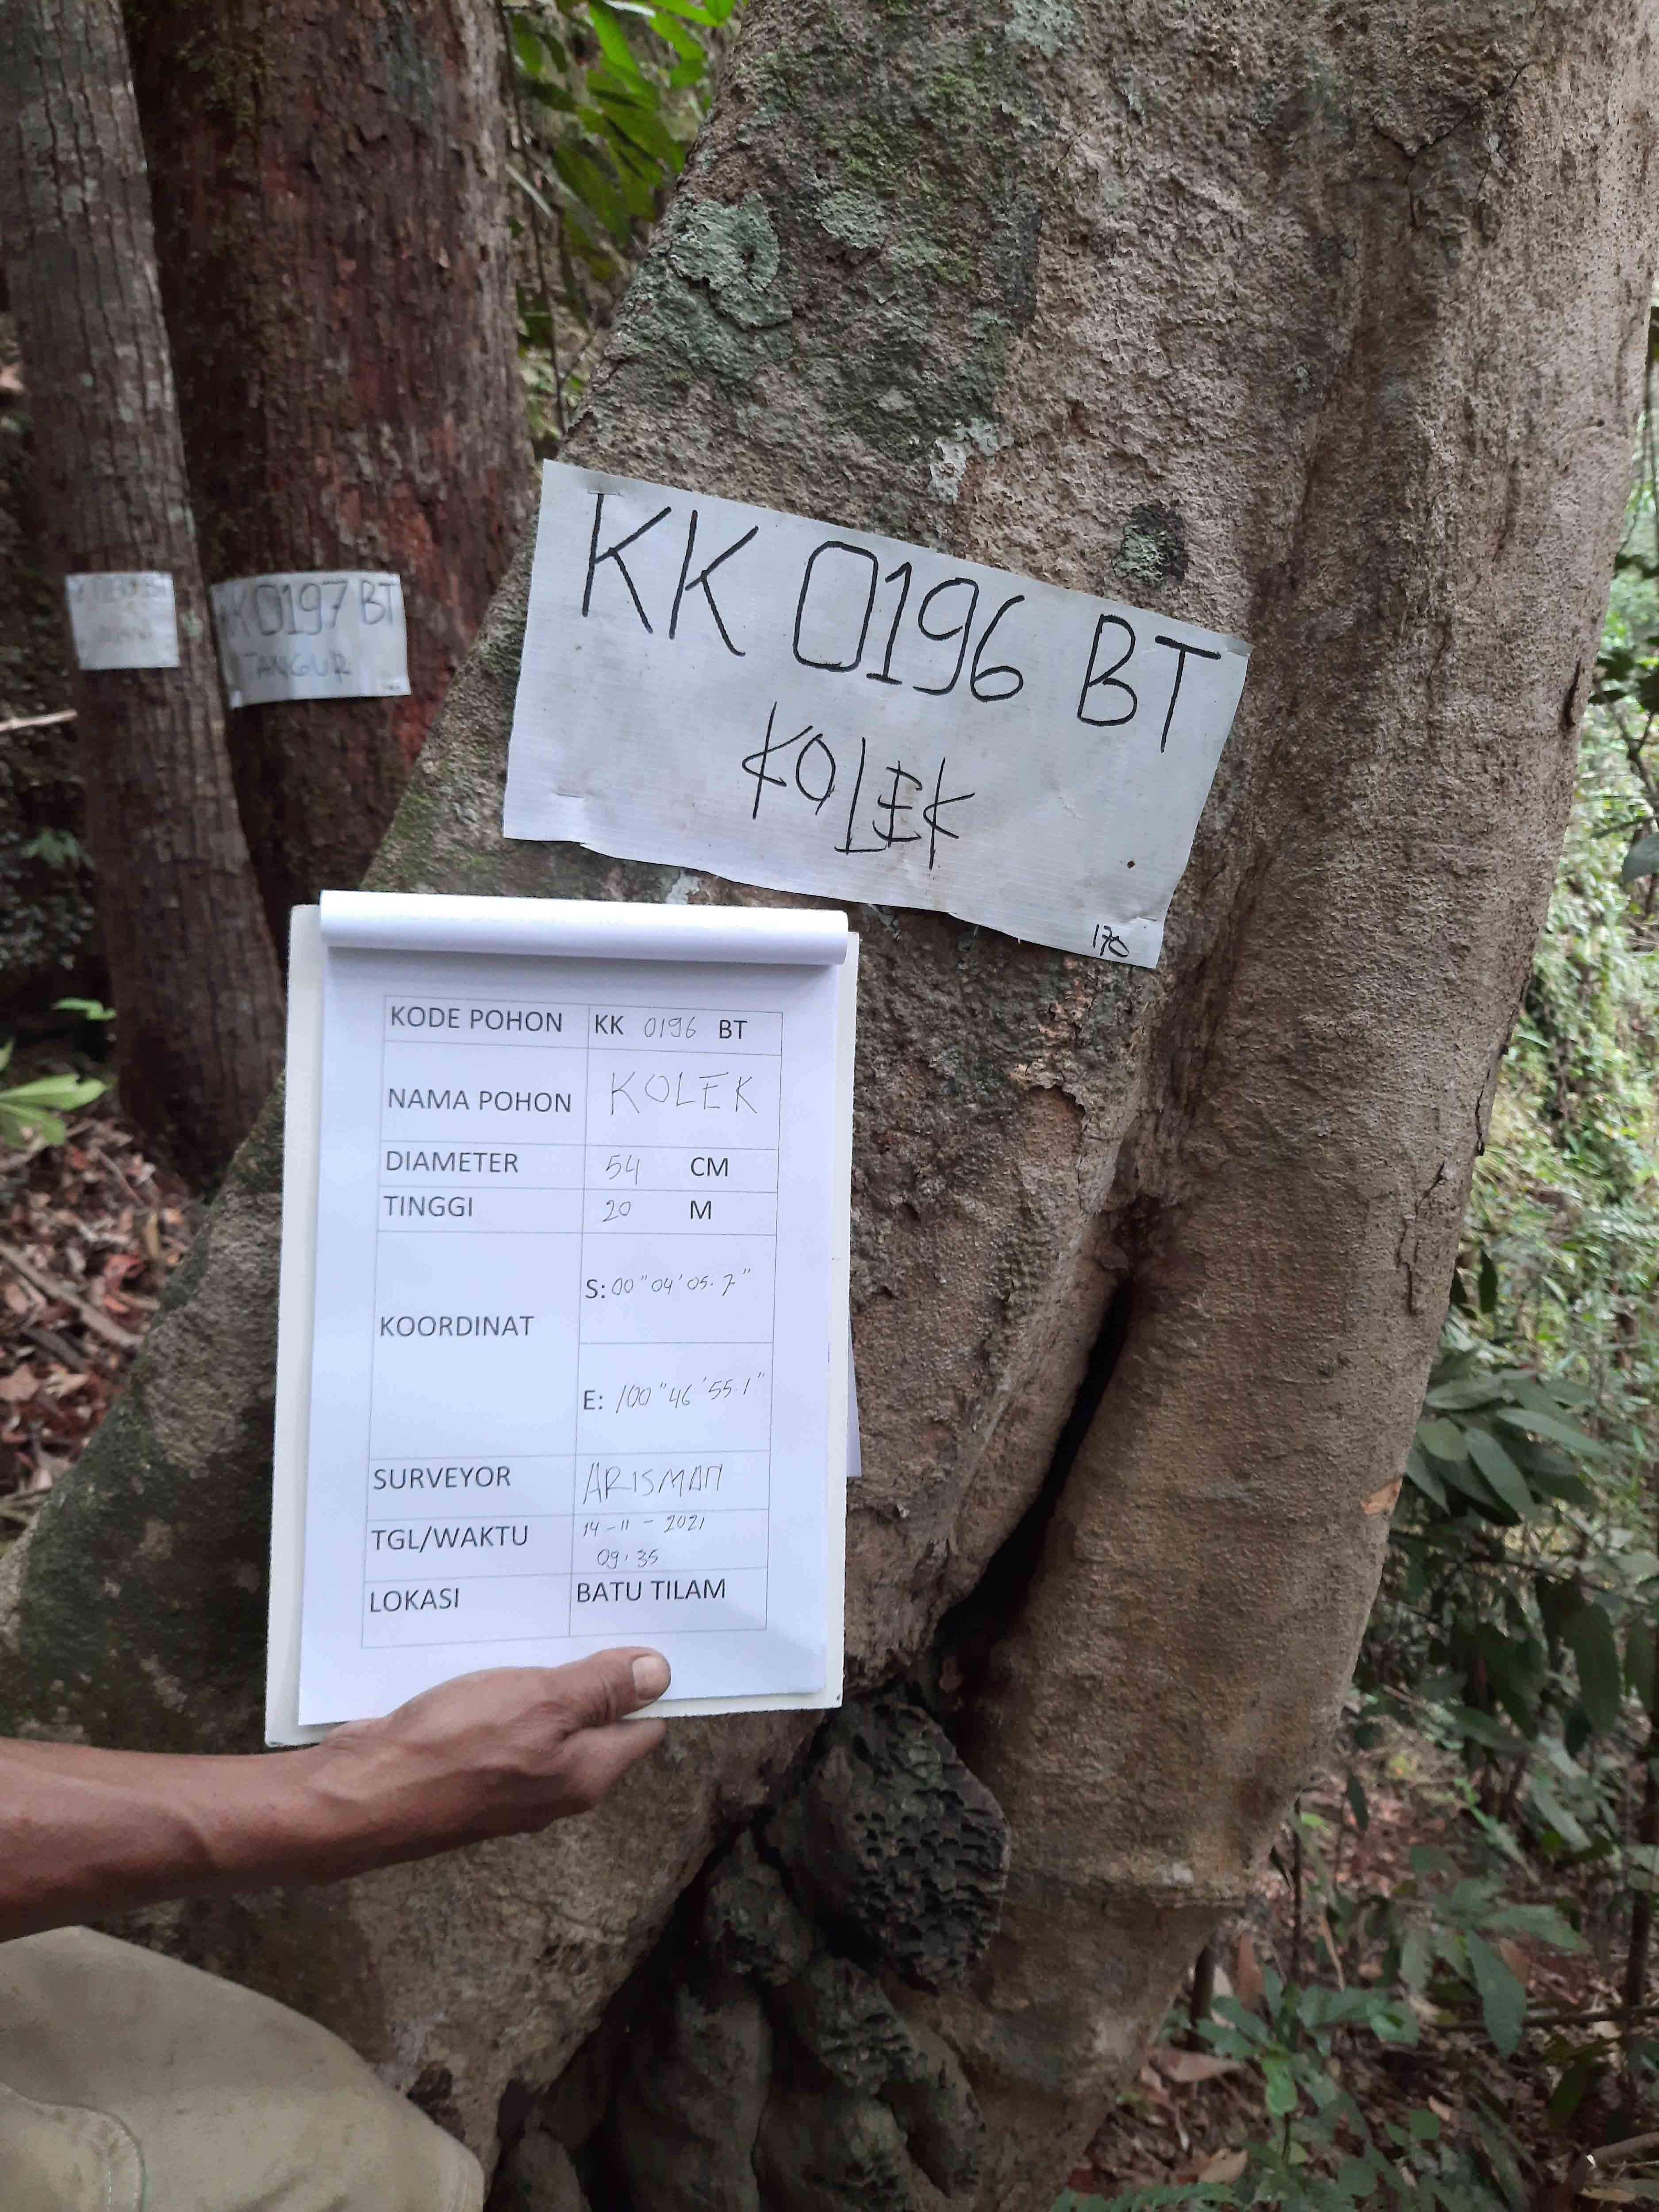 KK 0196 BT
KOLEK
170
KK 0197 BT
TANGUR
KODE POHON KK 0196 BT
NAMA POHON KOLEK
DIAMETER 54 CM
TINGGI 20 M
KOORDINAT
S: 00" 04' 05.7"
E: 100" 46' 55.1"
SURVEYOR ARISMAN
TGL/WAKTU 14-11-2021
09.35
LOKASI BATU TILAM